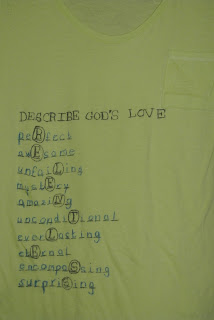 DESCRIBE GOD'S LOVE
peRfect
awEsome
unfaiLing
mystEry
amaziNg
uncondiTional
everLasting
etErnal
encompaSsing
surpriSing